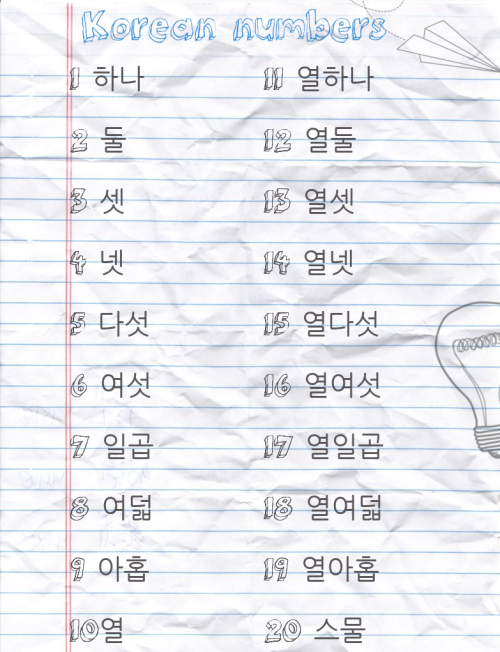 Korean numbers
1 하나
2 둘
3 셋
4 넷
5 다섯
6 여섯
7 일곱
8 여덟
9 아홉
10열
11 열하나
12 열둘
13 열셋
14 열넷
15 열다섯
16 열여섯
17 열일곱
18 열여덟
19 열아홉
20 스물